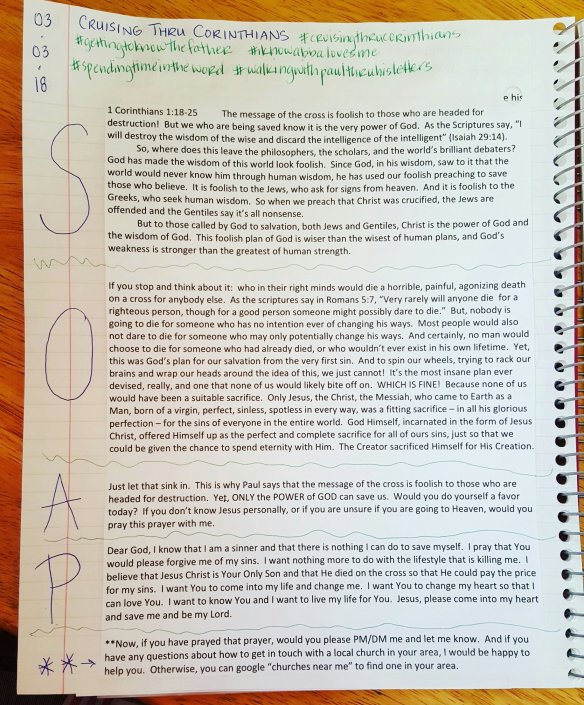 03
.
03
.
18
CRUISING THRU CORINTHIANS #cruisingthrucorinthians
#gettingtoknowthefather #iknowabbalovesme
#spendingtimeintheword #walkingwithpaulthruhisletters
e his
S
1 Corinthians 1:18-25 The message of the cross is foolish to those who are headed for
destruction! But we who are being saved know it is the very power of God. As the Scriptures say, "I
will destroy the wisdom of the wise and discard the intelligence of the intelligent" (Isaiah 29:14).
So, where does this leave the philosophers, the scholars, and the world's brilliant debaters?
God has made the wisdom of this world look foolish. Since God, in his wisdom, saw to it that the
world would never know him through human wisdom, he has used our foolish preaching to save
those who believe. It is foolish to the Jews, who ask for signs from heaven. And it is foolish to the
Greeks, who seek human wisdom. So when we preach that Christ was crucified, the Jews are
offended and the Gentiles say it's all nonsense.
But to those called by God to salvation, both Jews and Gentiles, Christ is the power of God and
the wisdom of God. This foolish plan of God is wiser than the wisest of human plans, and God's
weakness is stronger than the greatest of human strength.
O
If you stop and think about it: who in their right minds would die a horrible, painful, agonizing death
on a cross for anybody else. As the scriptures say in Romans 5:7, "Very rarely will anyone die for a
righteous person, though for a good person someone might possibly dare to die." But, nobody is
going to die for someone who has no intention ever of changing his ways. Most people would also
not dare to die for someone who may only potentially change his ways. And certainly, no man would
choose to die for someone who had already died, or who wouldn't ever exist in his own lifetime. Yet,
this was God's plan for our salvation from the very first sin. And to spin our wheels, trying to rack our
brains and wrap our heads around the idea of this, we just cannot! It's the most insane plan ever
devised, really, and one that none of us would likely bite off on. WHICH IS FINE! Because none of us
would have been a suitable sacrifice. Only Jesus, the Christ, the Messiah, who came to Earth as a
Man, born of a virgin, perfect, sinless, spotless in every way, was a fitting sacrifice – in all his glorious
perfection – for the sins of everyone in the entire world. God Himself, incarnated in the form of Jesus
Christ, offered Himself up as the perfect and complete sacrifice for all of ours sins, just so that we
could be given the chance to spend eternity with Him. The Creator sacrificed Himself for His Creation.
A
Just let that sink in. This is why Paul says that the message of the cross is foolish to those who are
headed for destruction. Yet, ONLY the POWER of GOD can save us. Would you do yourself a favor
today? If you don't know Jesus personally, or if you are unsure if you are going to Heaven, would you
pray this prayer with me.
P
Dear God, I know that I am a sinner and that there is nothing I can do to save myself. I pray that You
would please forgive me of my sins. I want nothing more to do with the lifestyle that is killing me. I
believe that Jesus Christ is Your Only Son and that He died on the cross so that He could pay the price
for my sins. I want You to come into my life and change me. I want You to change my heart so that I
can love You. I want to know You and I want to live my life for You. Jesus, please come into my heart
and save me and be my Lord.
* * →
**Now, if you have prayed that prayer, would you please PM/DM me and let me know. And if you
have any questions about how to get in touch with a local church in your area, I would be happy to
help you. Otherwise, you can google "churches near me" to find one in your area.